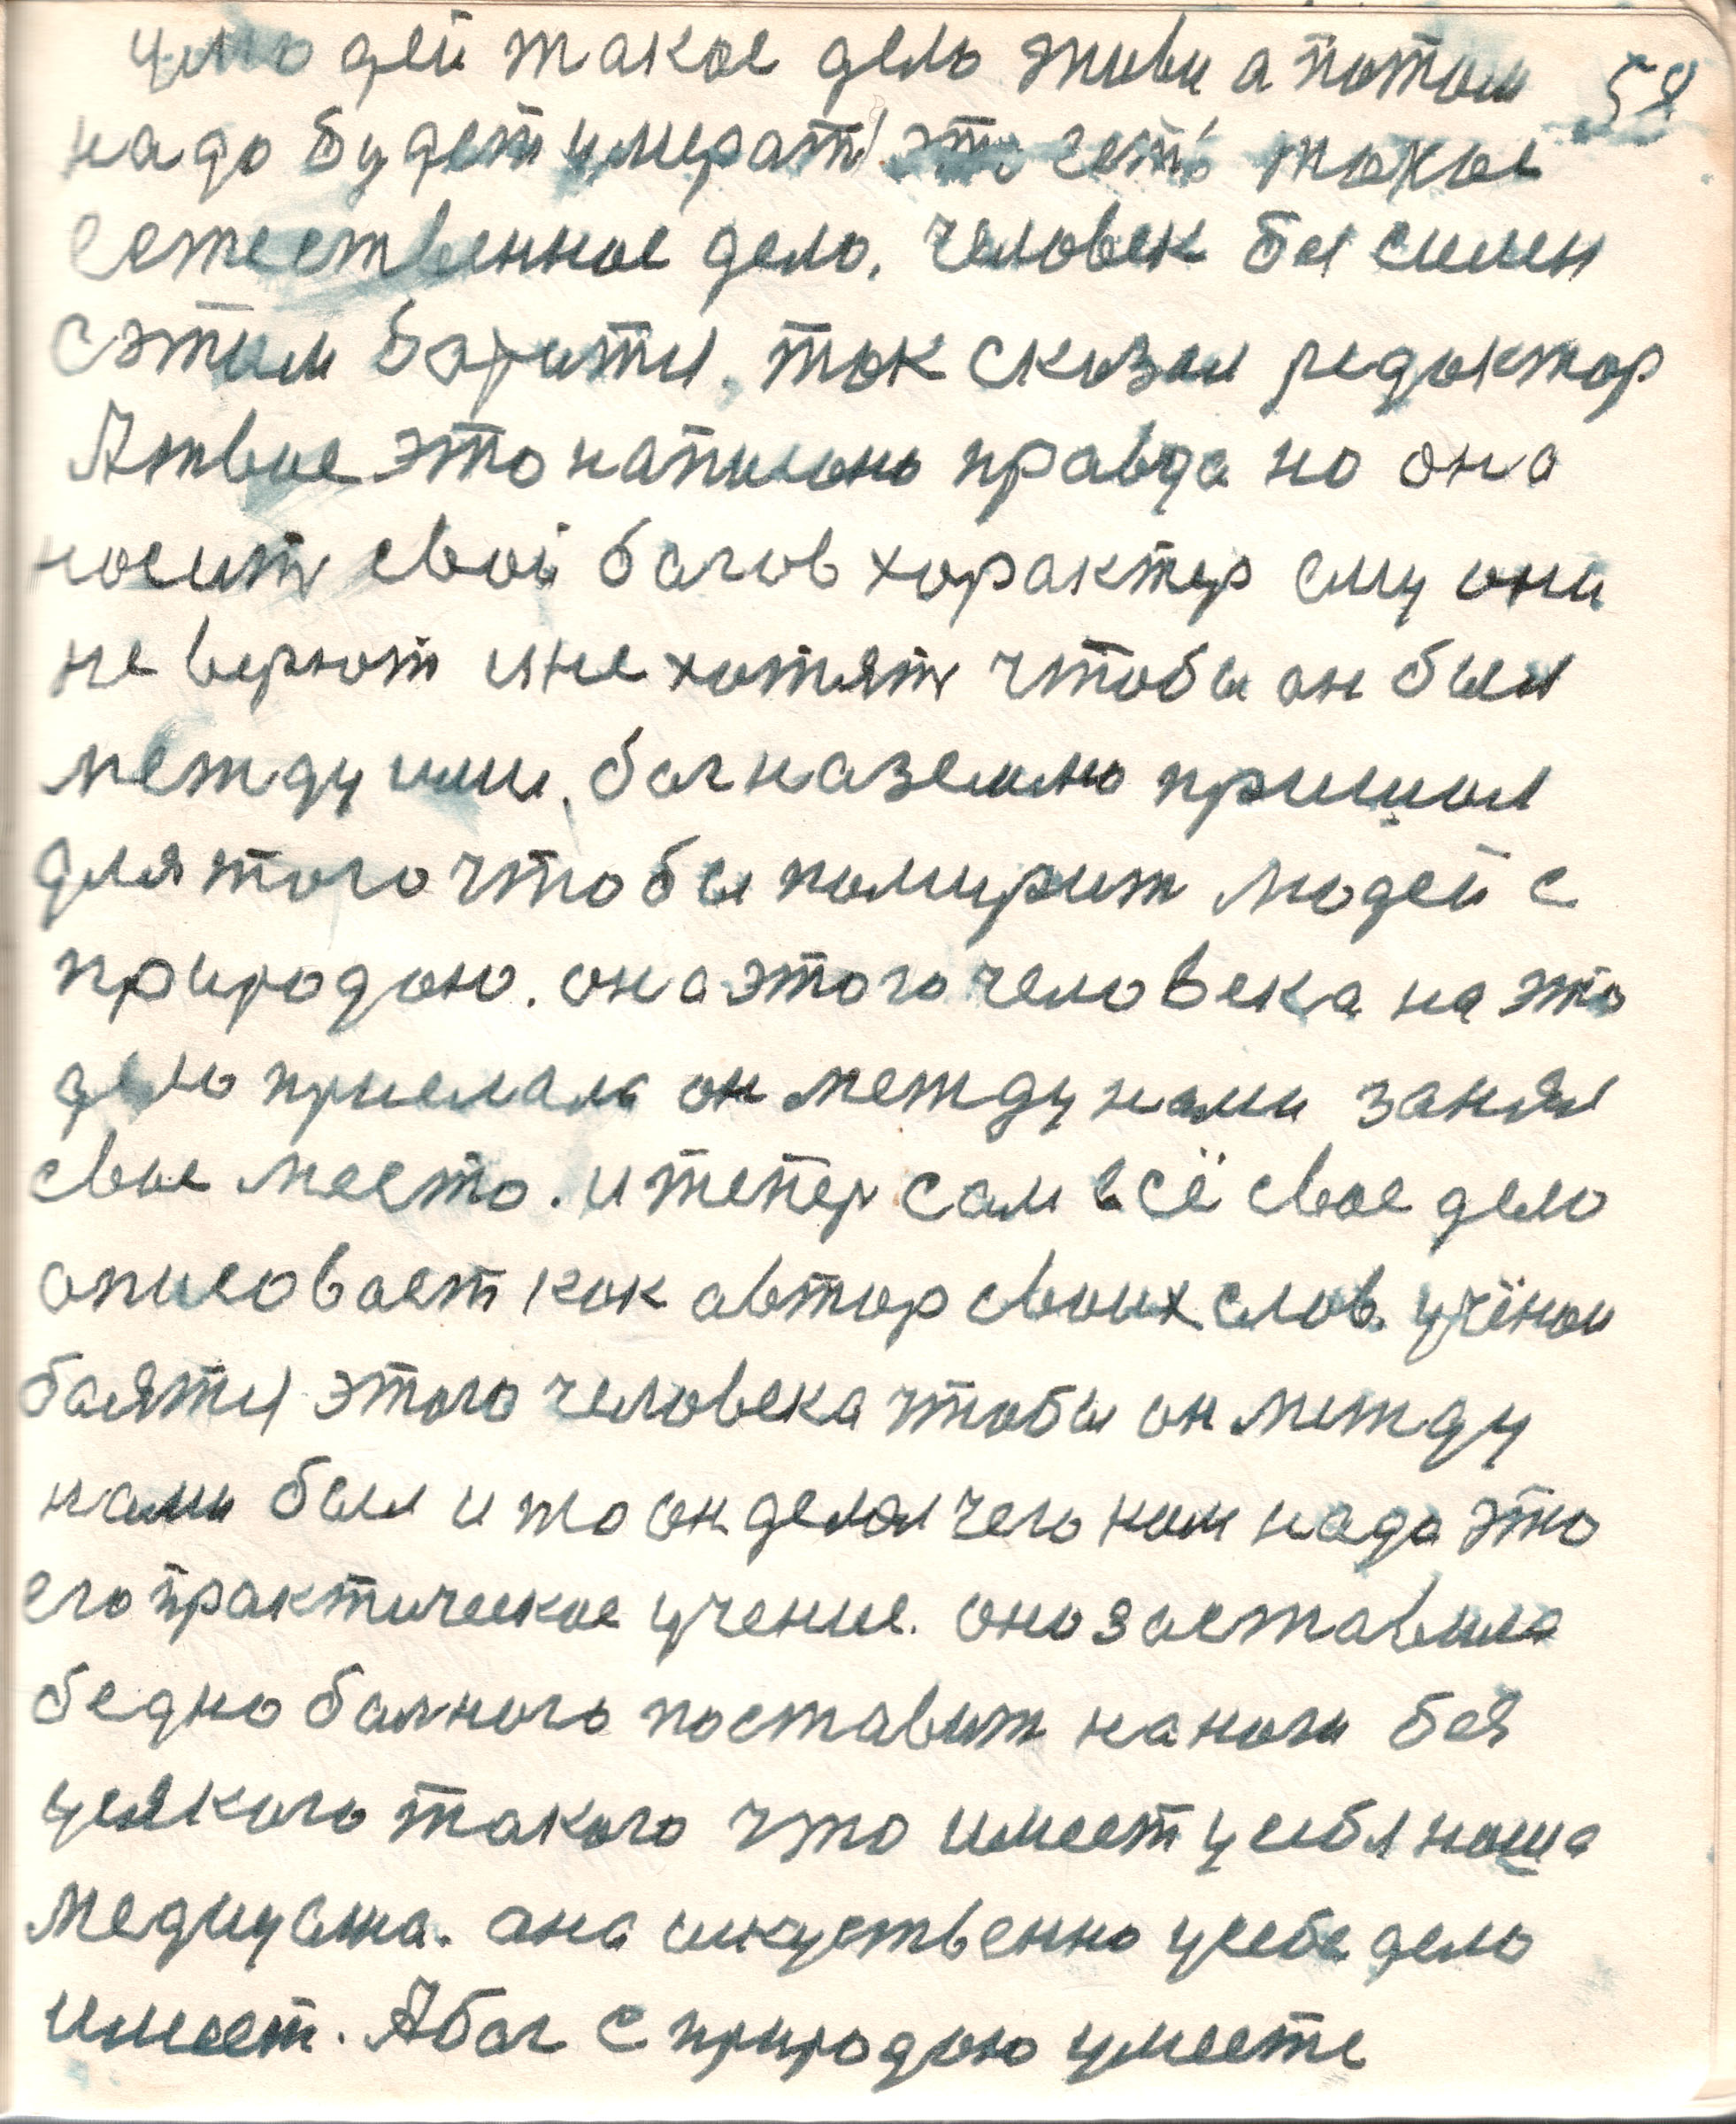 улюдей такое дело живи а потом 58
надо будет умерат это есть такое
естественное дело. человек бы силен
с этим боротись. так сказал редактор
А твое это написано правда но она
носит свой богов характер ему они
не верют и не хотят чтобы он был
между ими. бог на землю пришол
для того чтобы помирит людей с
природою. она этого человека на это
дело прислала он между нами занял
свое место. и тепер сам всё свое дело
описовает как автор своих слов. учёнои
боятся этого человека чтобы он между
нами был и то он делал чего нам надо это
его практическое учение. оно заставила
бедно болного поставит на ноги без
усякого такого что имеет у себя наша
медицына. она искуственно у себе дело
имеет. А бог с природою умеете